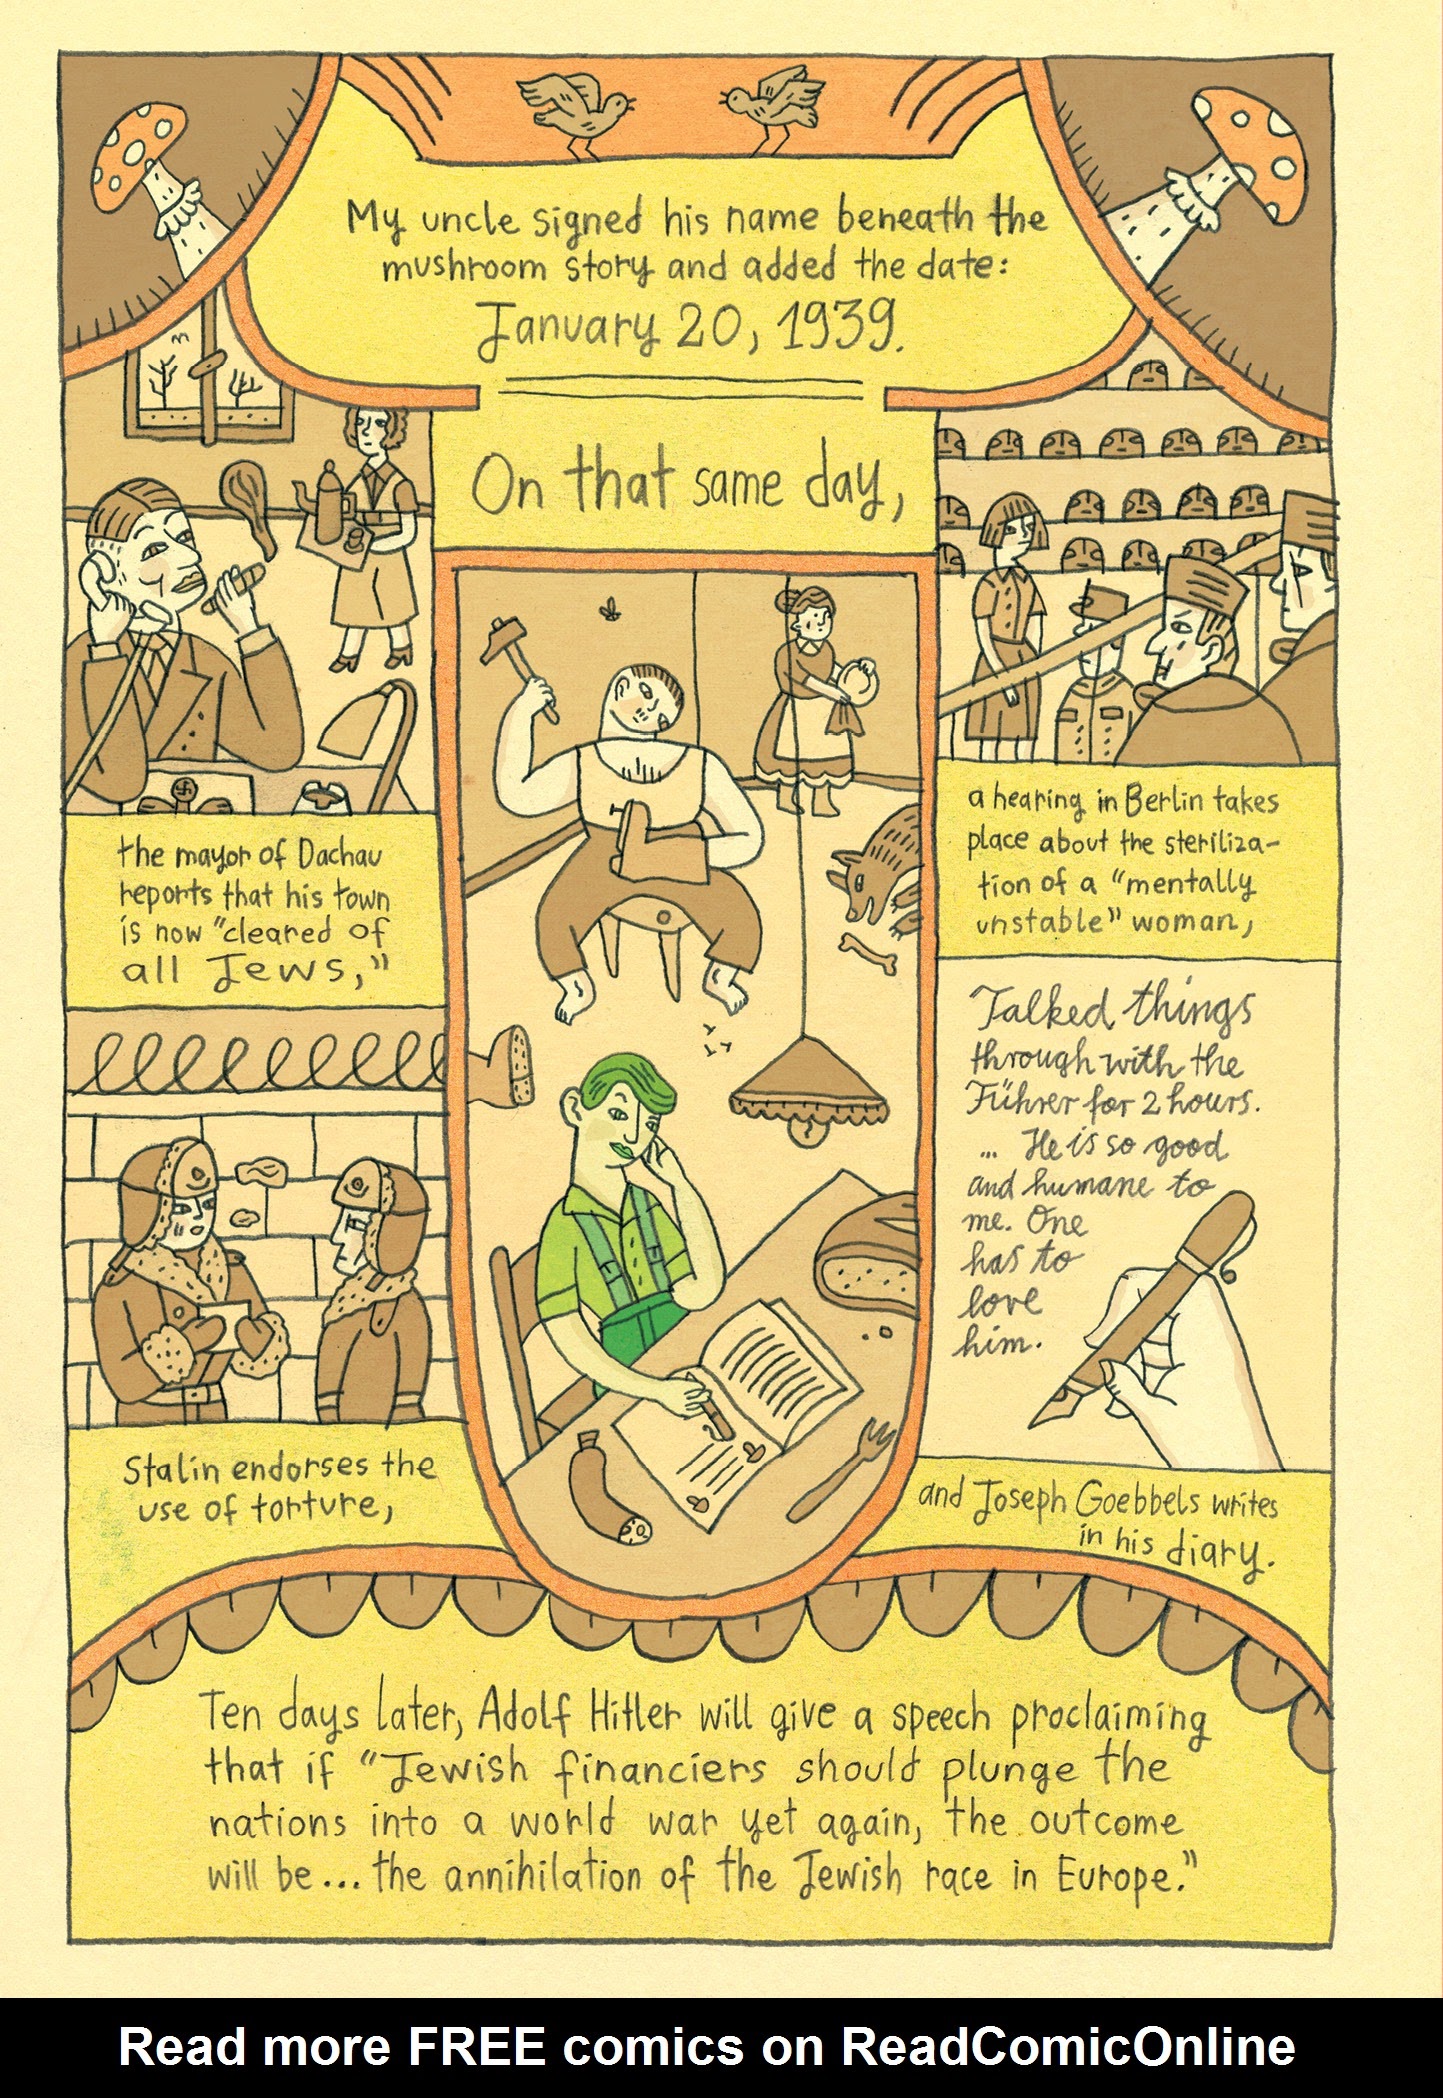 My uncle signed his name beneath the
mushroom story and added the date:
January 20, 1939.
On that same day,
the mayor of Dachau
reports that his town
is now "cleared of
all Jews,"
a hearing in Berlin takes
place about the steriliza-
tion of a "mentally
unstable" woman,
Stalin endorses the
use of torture,
Talked things
through with the
Führer for 2 hours.
... He is so good
and humane to
me. One
has to
love
him.
and Joseph Goebbels writes
in his diary.
Ten days later, Adolf Hitler will give a speech proclaiming
that if "Jewish financiers should plunge the
nations into a world war yet again, the outcome
will be... the annihilation of the Jewish race in Europe."
Read more FREE comics on ReadComicOnline